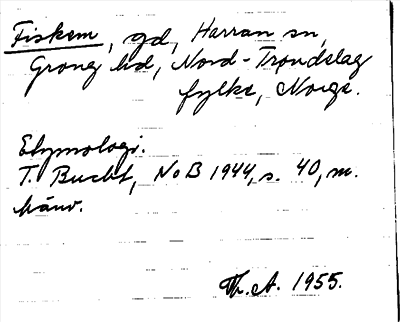 Fiskem, gd, Harran sn,
Grong hd, Nord-Trøndelag
fylke, Norge.
Etymologi:
T. Bucht, NoB 1944, s. 40, m.
hänv.
Th. A. 1955.